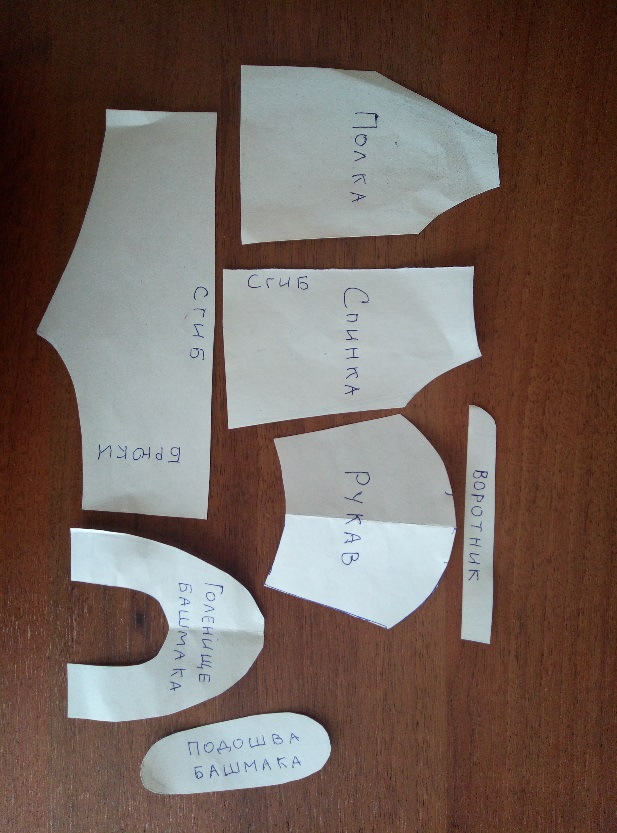 Полка
сгиб
Спинка
сгиб
БРЮКИ
РУКАВ
ВОРОТНИК
ГОЛЕНИЩЕ
БАШМАКА
ПОДОШВА
БАШМАКА